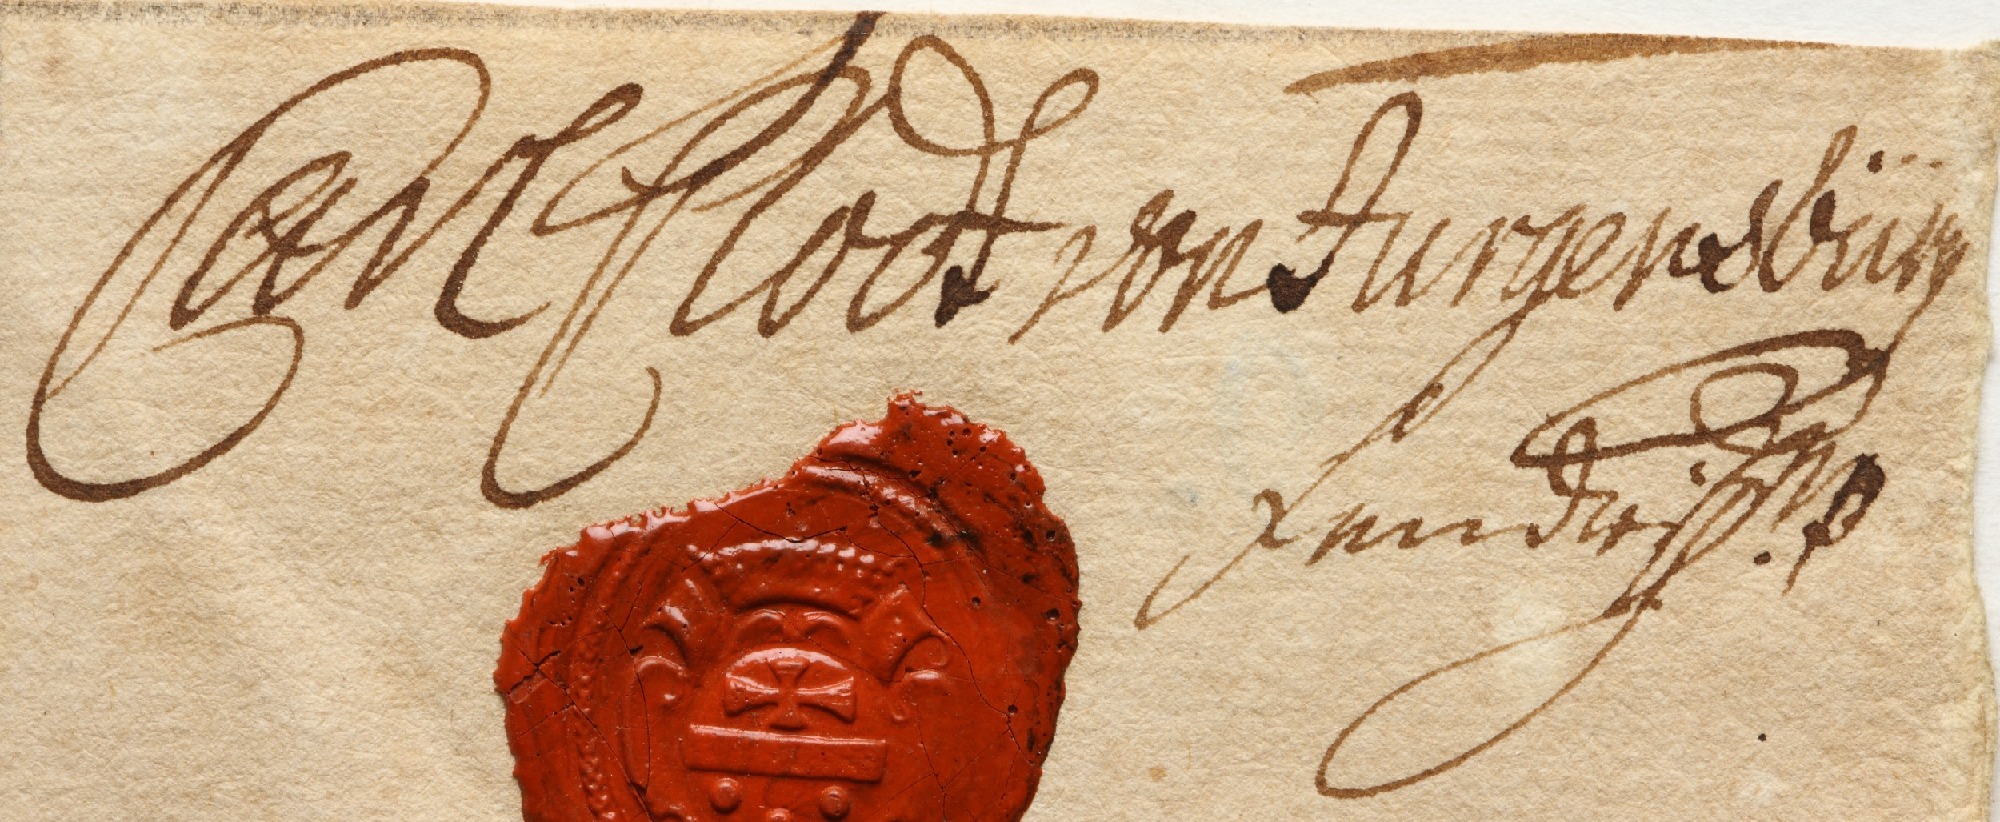 Carl Clodt von Jurgensbürg
Landrath